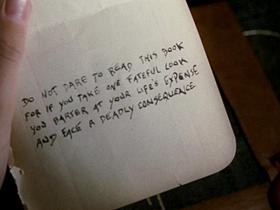 DO NOT DARE TO READ THIS BOOK
FOR IF YOU TAKE ONE FATEFUL LOOK
YOU BARTER AT YOUR LIFE'S EXPENSE
AND FACE A DEADLY CONSEQUENCE